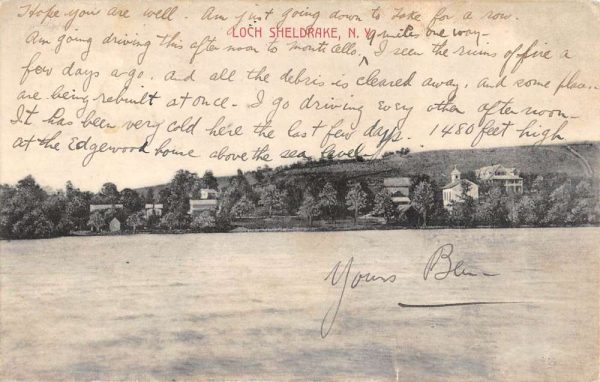 Hope you are well. Am just going down to Lake for a row.
LOCH SHELDRAKE, N. Y.
9 miles one way
Am going driving this after noon to monticello, I seen the ruins of fire a
few days a-go. and all the debris is cleared away, and some places
are being rebuilt at once. I go driving every other afternoon-
It has been very cold here the last few days. 1480 feet high
at the Edgewood house above the sea level,
Yours Ben